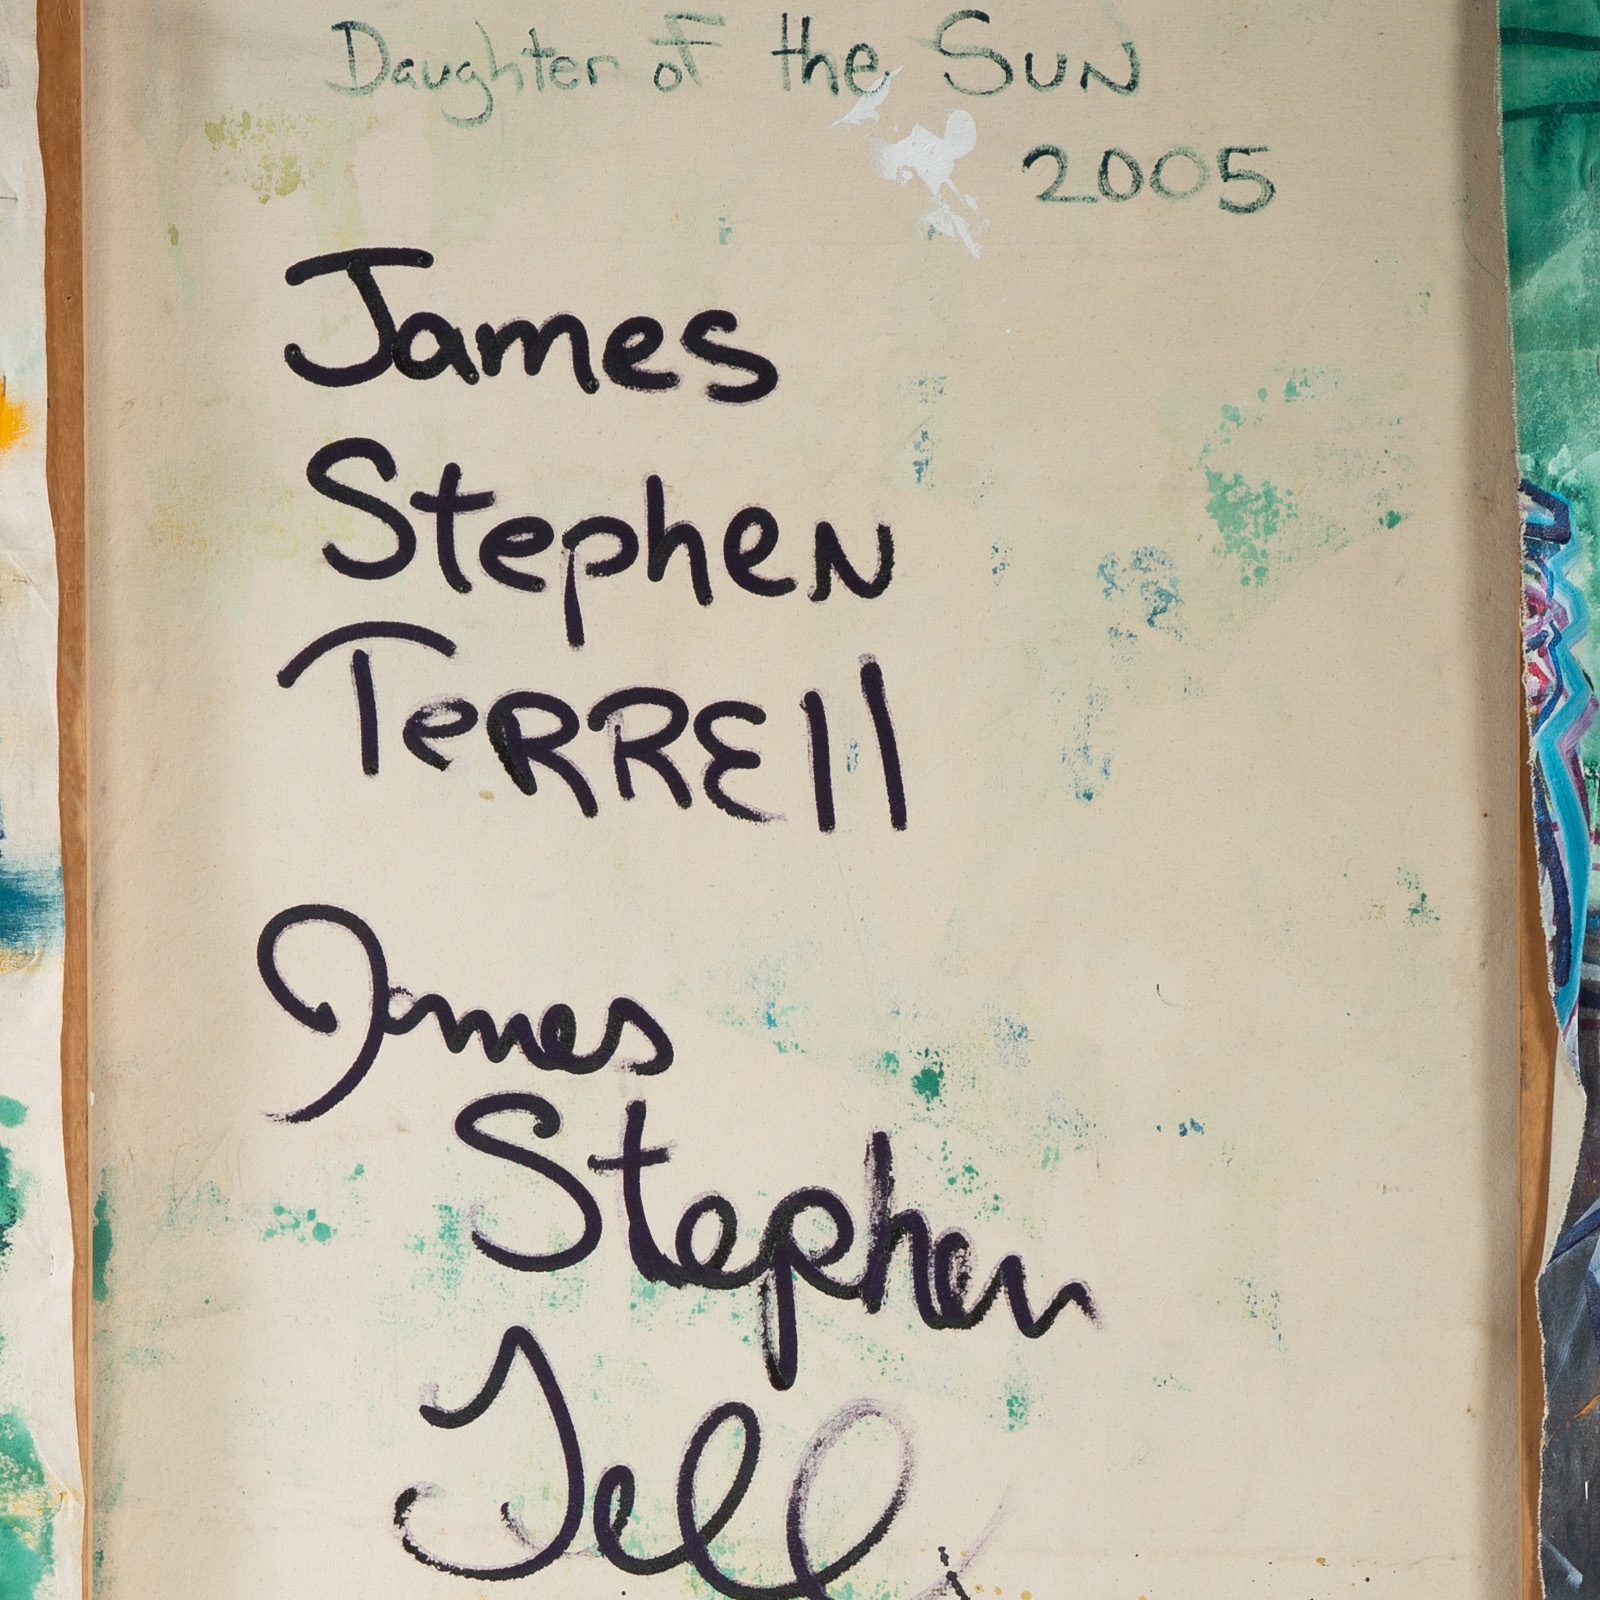 Daughter of the Sun
2005
James
Stephen
TeRRELL
James
Stephen
Tell